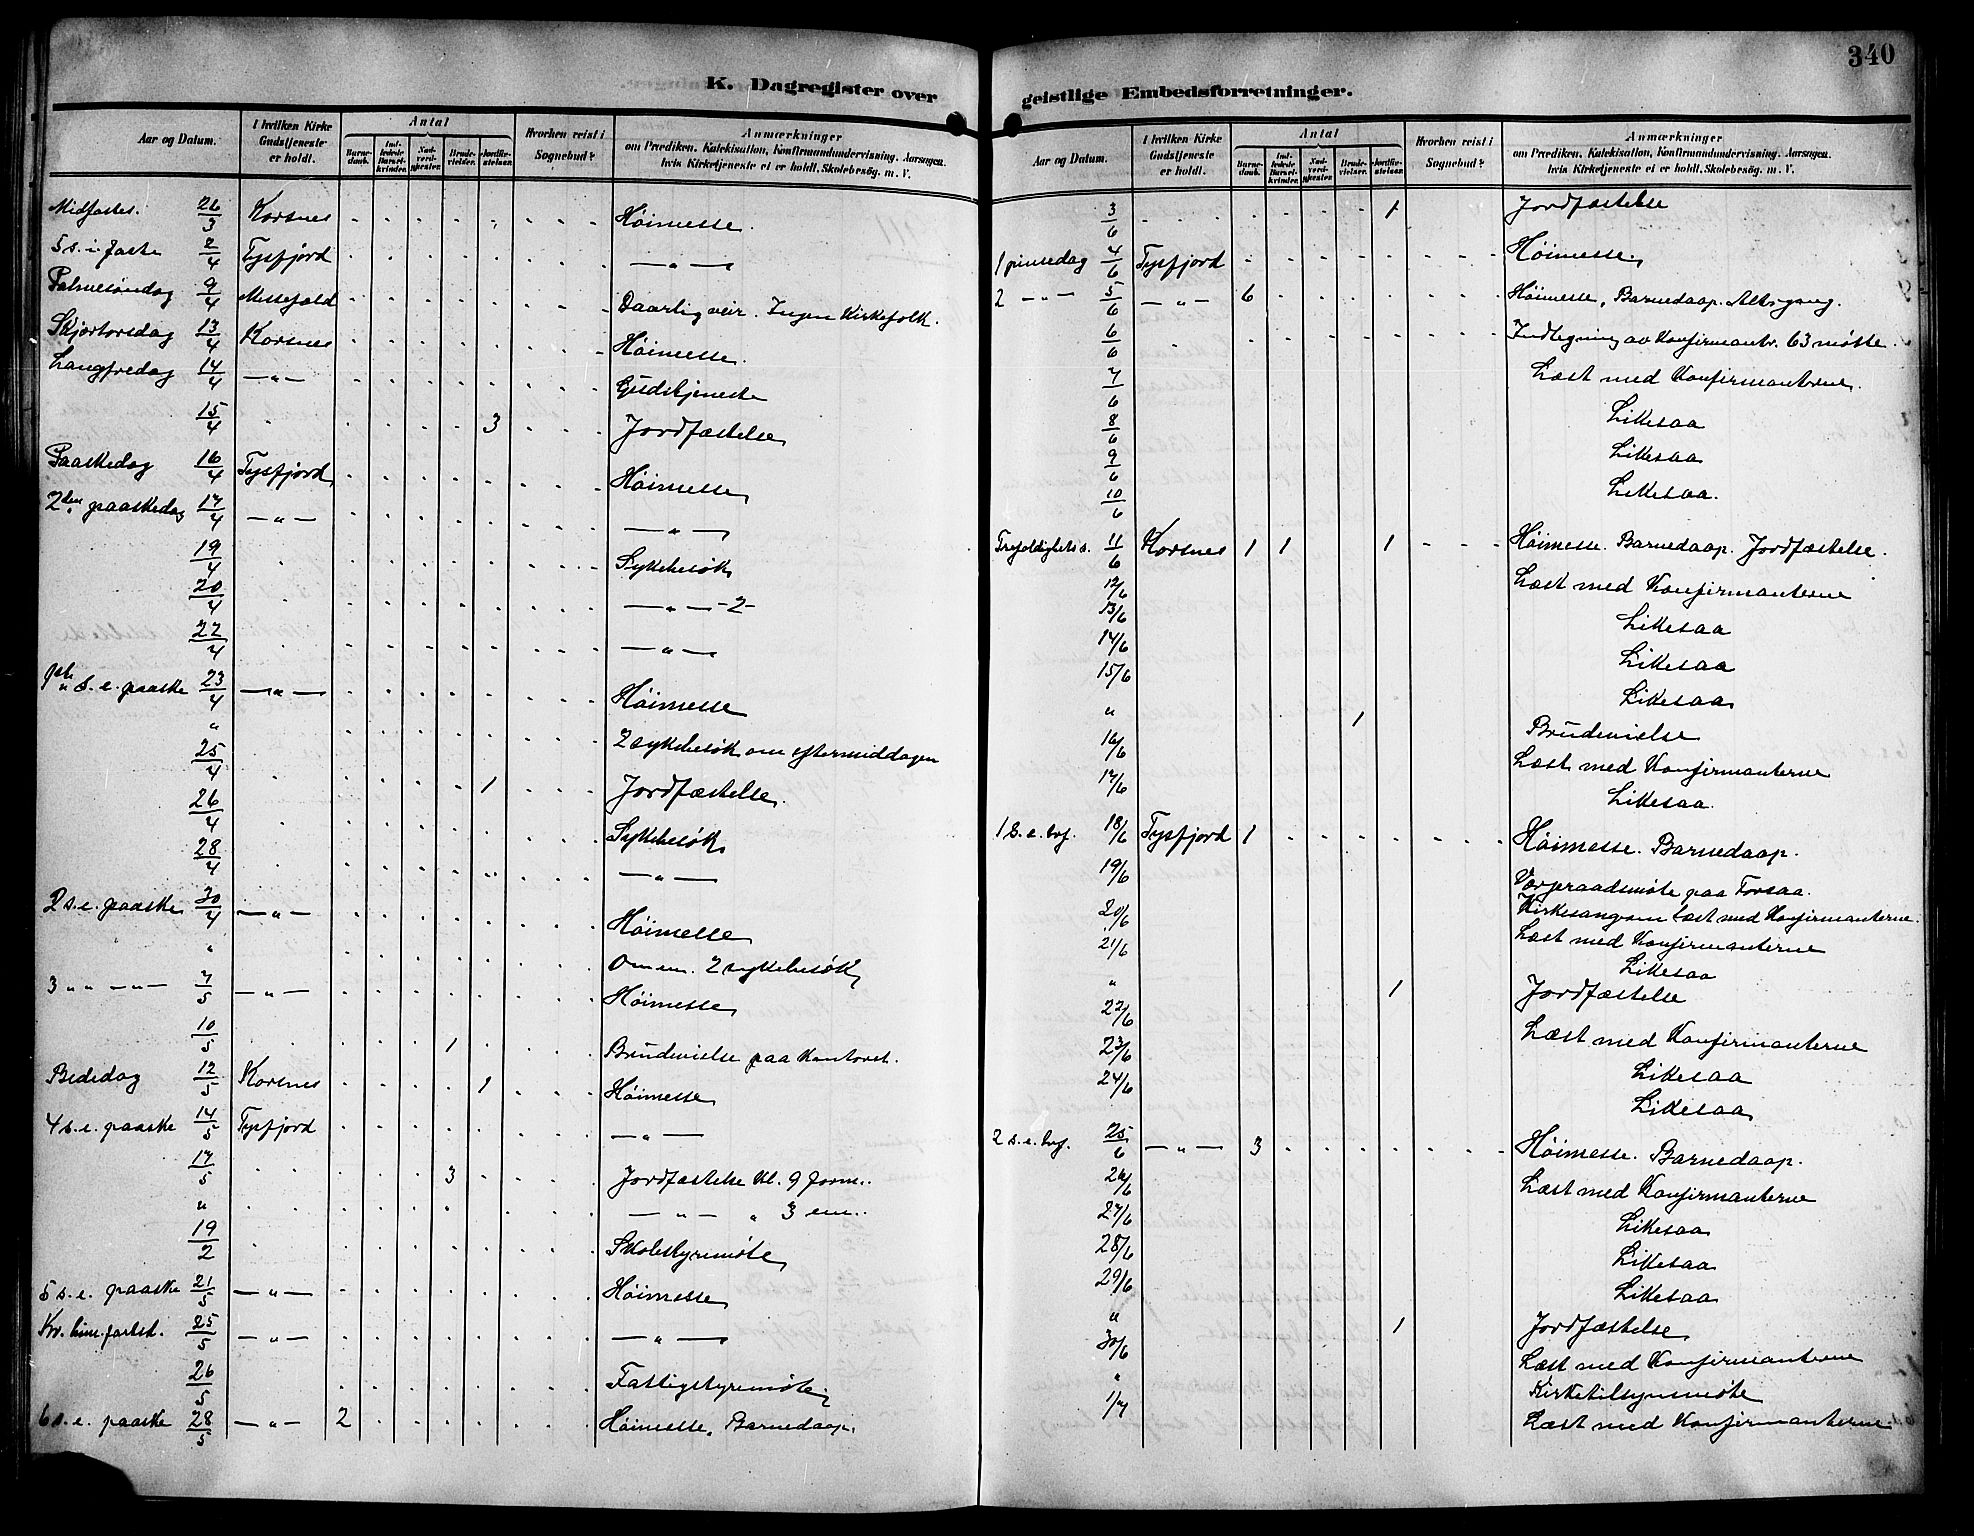 340
K. Dagregister over
Aar og Datum. I hvilken Kirke Gudstjeneste er holdt. Antal Barnedaab. Indledede Barselkvinder. Nadverdgjester. Brudevielser. Jordfæstelser. Hvorhen reist i Sognebud? Anmærkninger om Prædiken, Katekisation, Konfirmandundervisning, Aarsagen, hvis Kirketjeneste ei er holdt, Skolebesög. m. V.
Midfastes. 26/3 Korsnes Høimesse.
5 s. i. faste 2/4 Tysfjord — " —
Palmesøndag 9/4 Daarlig veir. Ingen Kirkefolk.
Skjærtorsdag 13/4 Korsnes Høimesse.
Langfredag 14/4 — " — Gudstjeneste
15/4 3 Jordfæstelse
Paaskedag 16/4 Tysfjord Høimesse
2den paaskedag 17/4 — " — — " —
19/4 Sykebesøk
20/4 — " — -2-
22/4 — " —
s. e. paaske 23/4 — " — Høimesse
" 2 sykebesøk om eftermiddagen
25/4 1 Jordfæstelse.
26/4 Sykebesøk
28/4 — " —
2 s. e. paaske 30/4 — " — Høimesse
" Om em. 2 sykebesøk
3 " " — " — 7/5 — " — Høimesse
10/5 1 Brudevielse paa Kontoret.
Bededag 12/5 Korsnes 1 Høimesse
4 s. e. paaske 14/5 Tysfjord — " —
17/5 3 Jordfæstelse kl. 9 form..
" " — " — " 3 em..
19/2 Skolestyremøte
5 s. e. paaske 21/5 — " — Høimesse
Kr. him. fartsd. 25/5 — " — — " —
26/5 Fattigstyremøte
6 s. e. paaske 28/5 — " — 2 Høimesse, Barnedaap.
geistlige Embedsforretninger.
Aar og Datum. I hvilken Kirke Gudstjeneste er holdt. Antal Barnedaab. Indledede Barselkvinder. Nadverdgjester. Brudevielser. Jordfæstelser. Hvorhen reist i Sognebud? Anmærkninger om Prædiken, Katekisation, Konfirmandundervisning, Aarsagen, hvis Kirketjeneste ei er holdt, Skolebesög. m. V.
3/6 1 Jordfæstelse
1 pinsedag 4/6 Tysfjord Høimesse
2 — " — 5/6 — " — 6 Høimesse, Barnedaap. Altergang.
6/6 Indlegning av Konfirmantr. 63 møtte.
7/6 Læst med Konfirmanterne.
8/6 Likesaa
9/6 Likesaa
10/6 Likesaa.
Trefoldighets s. 11/6 Korsnes 1 1 1 Høimesse. Barnedaap. Jordfæstelse.
12/6 Læst med Konfirmanterne
13/6 Likesaa
14/6 Likesaa
15/6 Likesaa
" 1 Brudevielse
16/6 Læst med Konfirmanterne
17/6 Likesaa.
1 S. e. tref. 18/6 Tysfjord 1 Høimesse. Barnedaap.
19/6 Vergeraadsmøte paa Forsaa.
Læst med Konfirmanterne.
20/6 Læst med Konfirmanterne
21/6 Likesaa
" 1 Jordfæstelse
22/6 Læst med Konfirmanterne
23/6 Likesaa
24/6 Likesaa
2 s. e. tref. 25/6 — " — 3 Høimesse. Barnedaap.
26/6 Læst med Konfirmanterne
27/6 Likesaa
28/6 Likesaa
29/6 Likesaa
" 1 Jordfæstelse
30/6 Læst med Konfirmanterne
" Kirketilsynsmøte
1/7 Læst med Konfirmanterne.